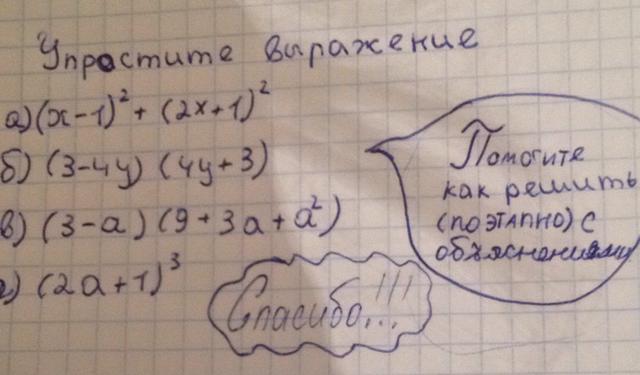 Упростите выражение
а) (x-1)² + (2x+1)²
б) (3-4y) (4y+3)
в) (3-a) (9+3a+a²)
г) (2a+1)³
Помогите
как решить
(поэтапно) с
объяснениями
Спасибо...!!!